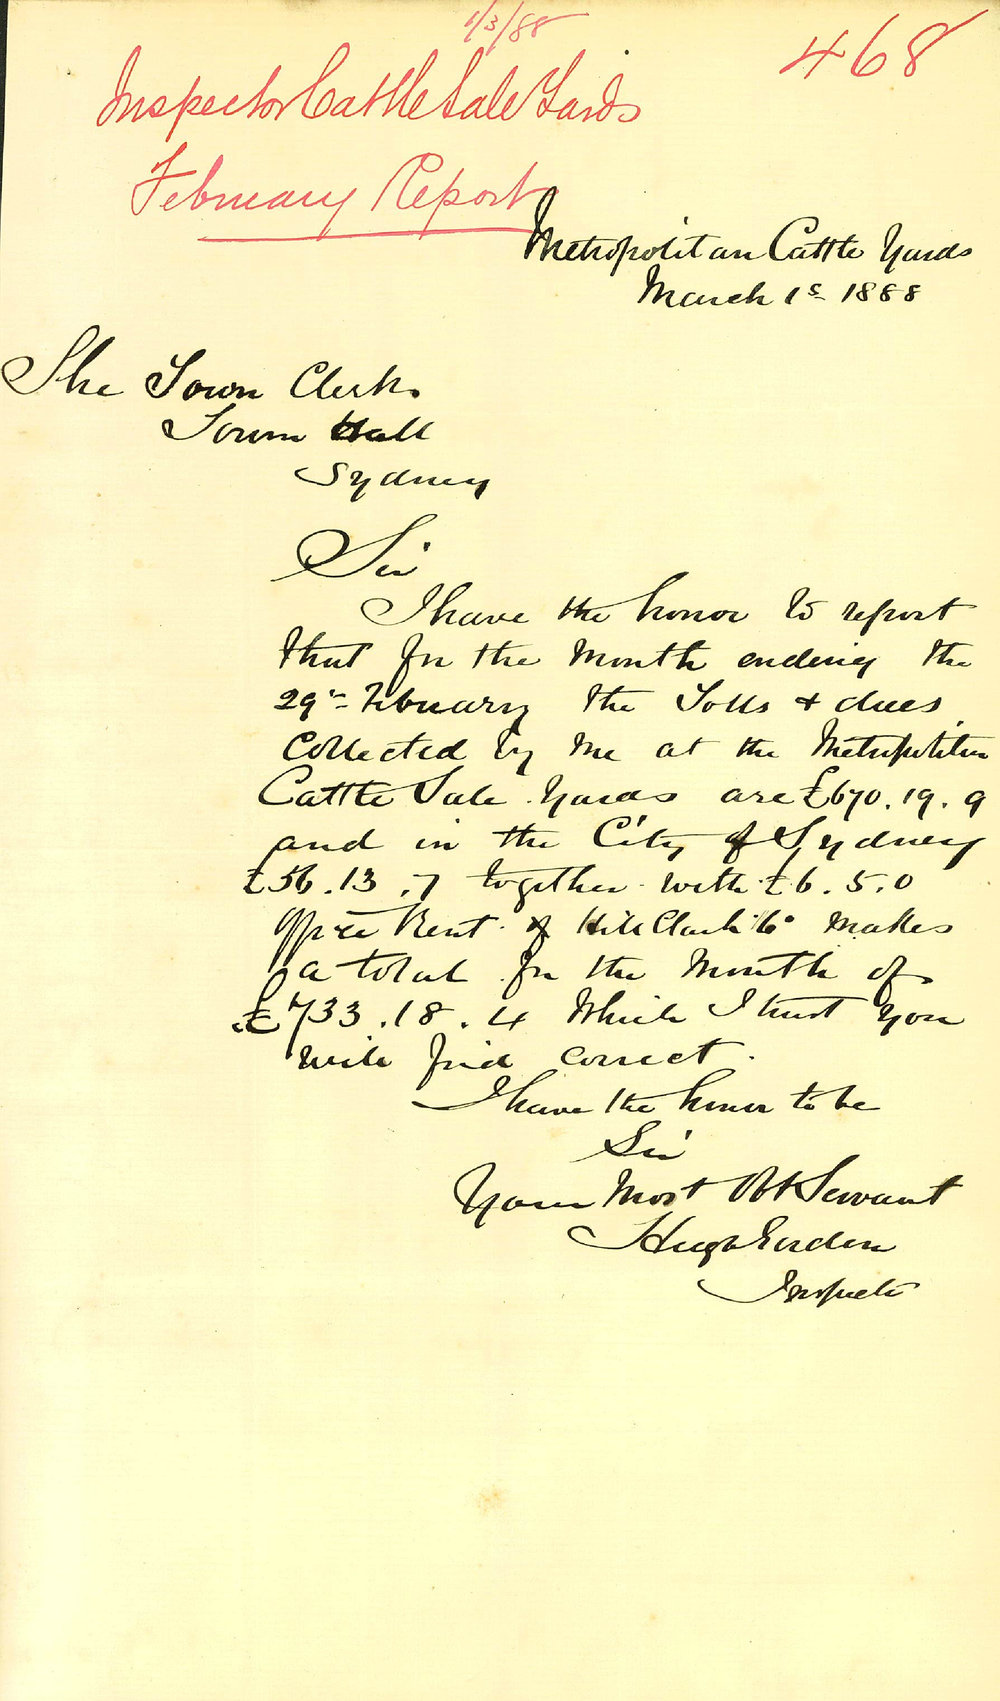 1/3/88
468
Inspector Cattle Sale Yards
February Report
Metropolitan Cattle Yards
March 1s 1888
The Town Clerk
Town Hall
Sydney
Sir
I have the honor to report
that for the Month ending the
29th February the Tolls & dues
Collected by me at the Metropolitan
Cattle Sale Yards are £670.19.9
and in the City of Sydney
£56.13.7 together with £6.5.0
Office Rent of Hill Clark & Co makes
a total for the Month of
£733.18.4 Which I trust you
will find correct.
I have the honor to be
Sir
Your Most Obt Servant
Hugh
Inspector